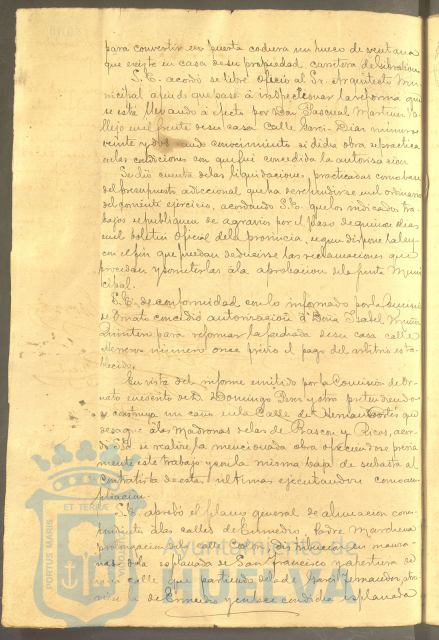 para convertir en puerta cochera un hueco de ventana
que existe en casa de su propiedad, carretera de Gibraleon
S.E. acordó se libre oficio al Sr. Arquitecto Mu-
nicipal a fin de que pase á inspeccionar la reforma que
se está llevando á efecto por Don Pascual Martinez Va-
llejo en el frente de su casa calle Garci-Diaz número
veinte y dos conocimiento si dicha obra se practica
en las condiciones con que fué concedida la autorización
Se dió cuenta de las liquidaciones, practicadas como base
del presupuesto adiccional que ha de refundirse en el ordinario
del corriente ejercicio, acordando S.E. que los indicados tra-
bajos se publiquen de agravios por el plazo de quince dias
en el boletin Oficial de la provincia, segun dispone la ley
con el fin que puedan deducirse las reclamaciones que
procedan y someterlas á la aprobacion de la Junta Muni-
cipal.
S.E. de conformidad con lo informado por la Comision
de Ornato concedió autorizacion á Doña Isabel Muñoz
Quintero para reformar la fachada de su casa calle
número once prévio el pago del arbitrio esta-
blecido.
En vista del informe emitido por la Comision de Or-
nato en escrito de D. Domingo Pons y otro pretendiendo
se construya un caño en la Calle de Hernan Cortés que
desague á las Madronas de las de Rascon y Palos, acor-
dó S.E. se realice la mencionada obra ofreciendose prévia-
mente este trabajo y con la misma baja de subasta al
contratista de estas ultimas ejecutandose como am-
pliacion.
S.E. aprobó el plano general de alineacion corres-
pondiente á las calles de Enmedio, Padre Marchena
prolongacion del calle Colon, distribucion en manza-
nas de la esplanada de San Francisco y apertura de
una calle que partiendo de la de Garci Fernandez, atra-
viese de Enmedio y en dicha esplanada
Ayuntamiento de
HUELVA
PORTUS MARIS
ET TERRAE